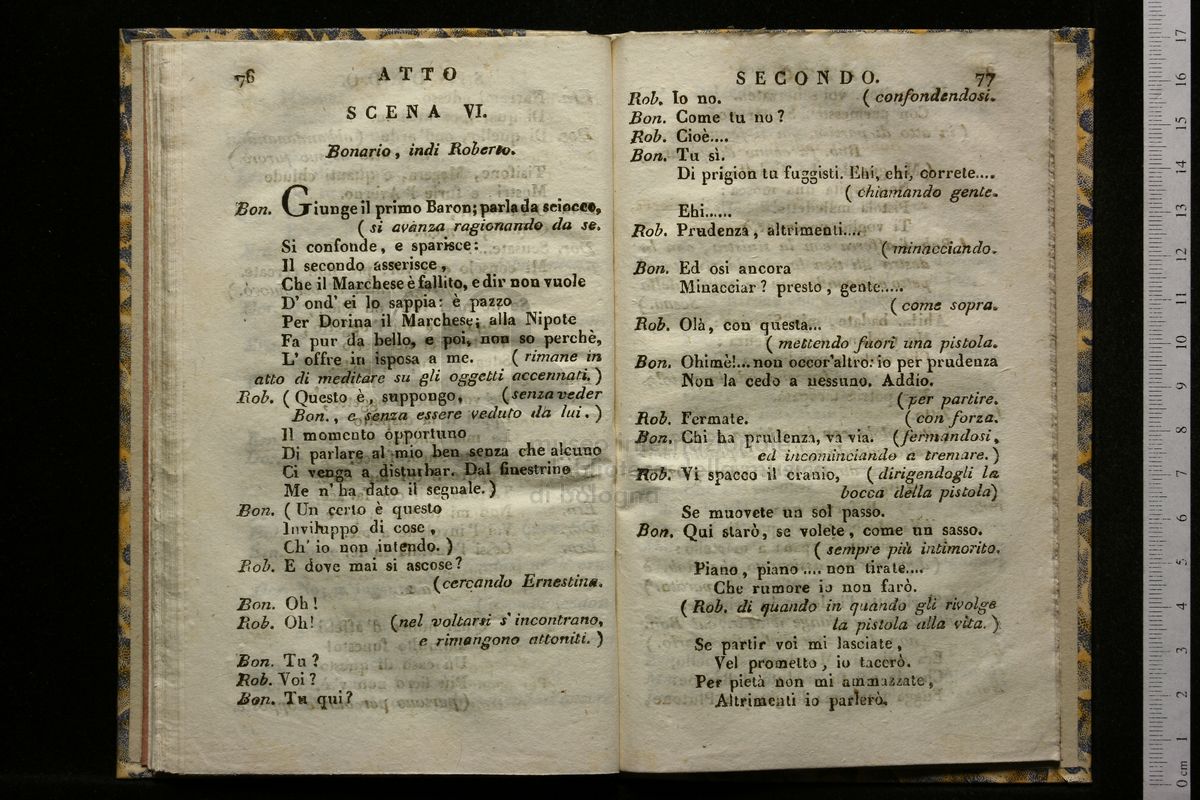 76 ATTO
SCENA VI.
Bonario, indi Roberto.
Bon. Giunge il primo Baron; parla da sciocco,
( si avanza ragionando da se.
Si confonde, e sparisce:
Il secondo asserisce,
Che il Marchese è fallito, e dir non vuole
D' ond' ei lo sappia: è pazzo
Per Dorina il Marchese; alla Nipote
Fa pur da bello, e poi, non so perchè,
L' offre in isposa a me. ( rimane in
atto di meditare su gli oggetti accennati. )
Rob. ( Questo è, suppongo, ( senza veder
Bon., e senza essere veduto da lui. )
Il momento opportuno
Di parlare al mio ben senza che alcuno
Ci venga a disturbar. Dal finestrino
Me n' ha dato il segnale. )
Bon. ( Un certo è questo
Inviluppo di cose,
Ch' io non intendo. )
Rob. E dove mai si ascose?
( cercando Ernestina.
Bon. Oh!
Rob. Oh! (nel voltarsi s' incontrano,
e rimangono attoniti. )
Bon. Tu?
Rob. Voi?
Bon. Tu qui?
SECONDO. 77
Rob. Io no. ( confondendosi.
Bon. Come tu no?
Rob. Cioè....
Bon. Tu sì.
Di prigion tu fuggisti. Ehi, ehi, correte....
( chiamando gente.
Ehi......
Rob. Prudenza, altrimenti....
( minacciando.
Bon. Ed osi ancora
Minacciar? presto, gente.....
( come sopra.
Rob. Olà, con questa...
( mettendo fuori una pistola.
Bon. Ohimè!... non occor'altro: io per prudenza
Non la cedo a nessuno. Addio.
( per partire.
Rob. Fermate. ( con forza.
Bon. Chi ha prudenza, va via. (fermandosi,
ed incominciando a tremare. )
Rob. Vi spacco il cranio, ( dirigendogli la
bocca della pistola)
Se muovete un sol passo.
Bon. Qui starò, se volete, come un sasso.
( sempre più intimorito.
Piano, piano .... non tirate....
Che rumore io non farò.
( Rob. di quando in quando gli rivolge
la pistola alla vita. )
Se partir voi mi lasciate,
Vel prometto, io tacerò.
Per pietà non mi ammazzate,
Altrimenti io parlerò.
di bologna
0 cm 1 2 3 4 5 6 7 8 9 10 11 12 13 14 15 16 17